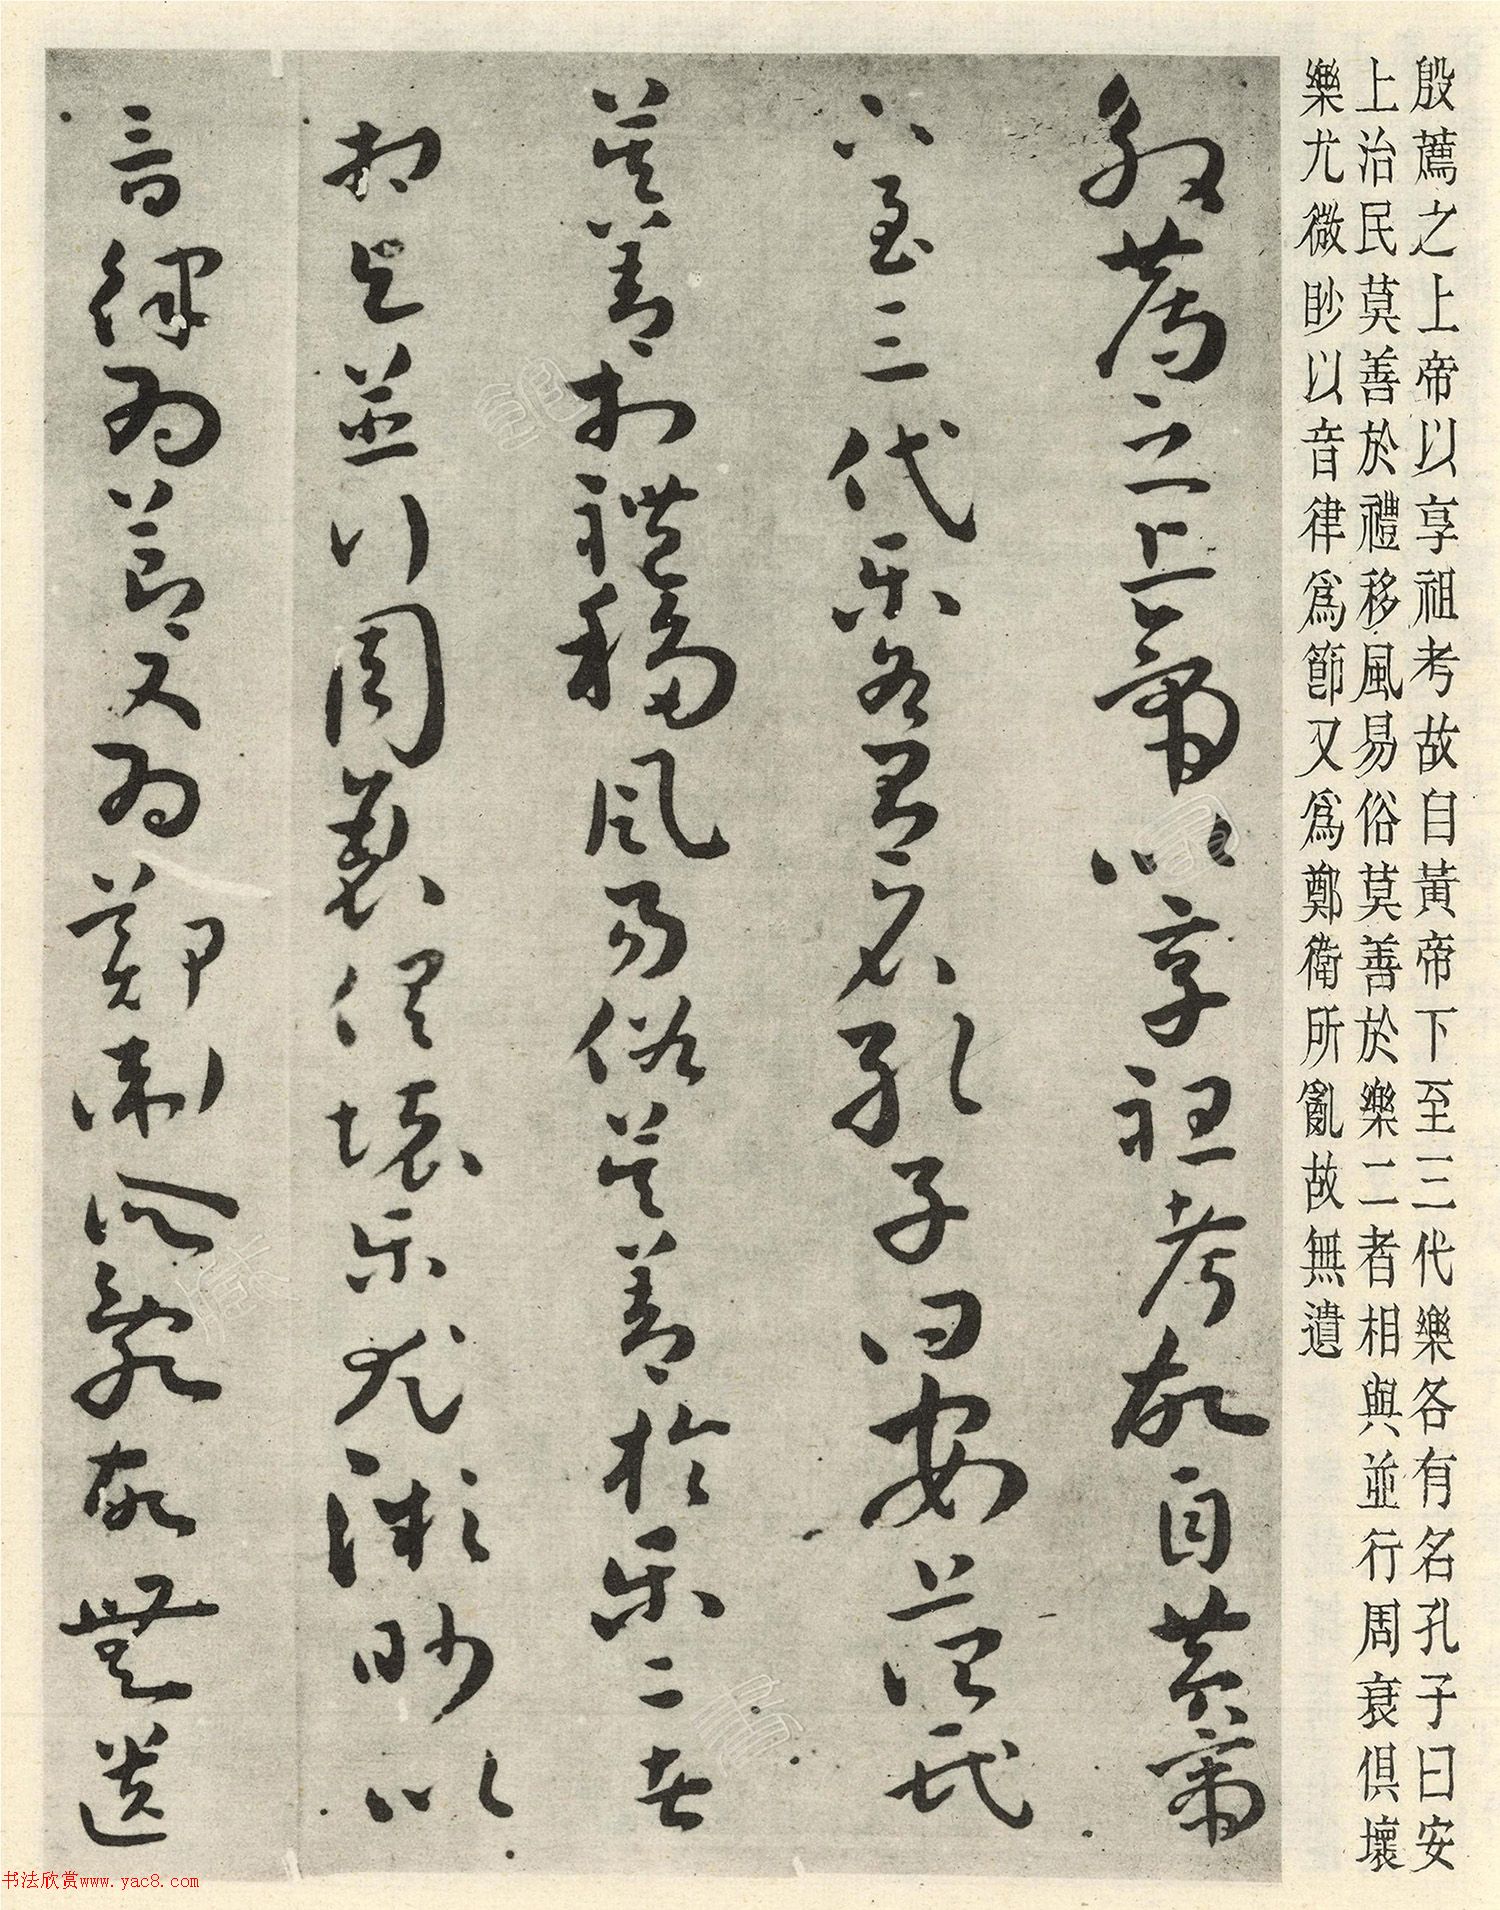 殷薦之上帝以享祖考故自黃帝下至三代樂各有名孔子曰安
上治民莫善於禮移風易俗莫善於樂二者相與並行周衰俱壞
樂尤微眇以音律爲節又爲鄭衛所亂故無遺
殷薦之上帝以享祖考故自黃帝
下至三代樂各有名孔子曰安上治民
莫善於禮移風易俗莫善於樂二者
相與並行周衰俱壞樂尤微眇以
音律爲節又爲鄭衛所亂故無遺
书法欣赏www.yac8.com